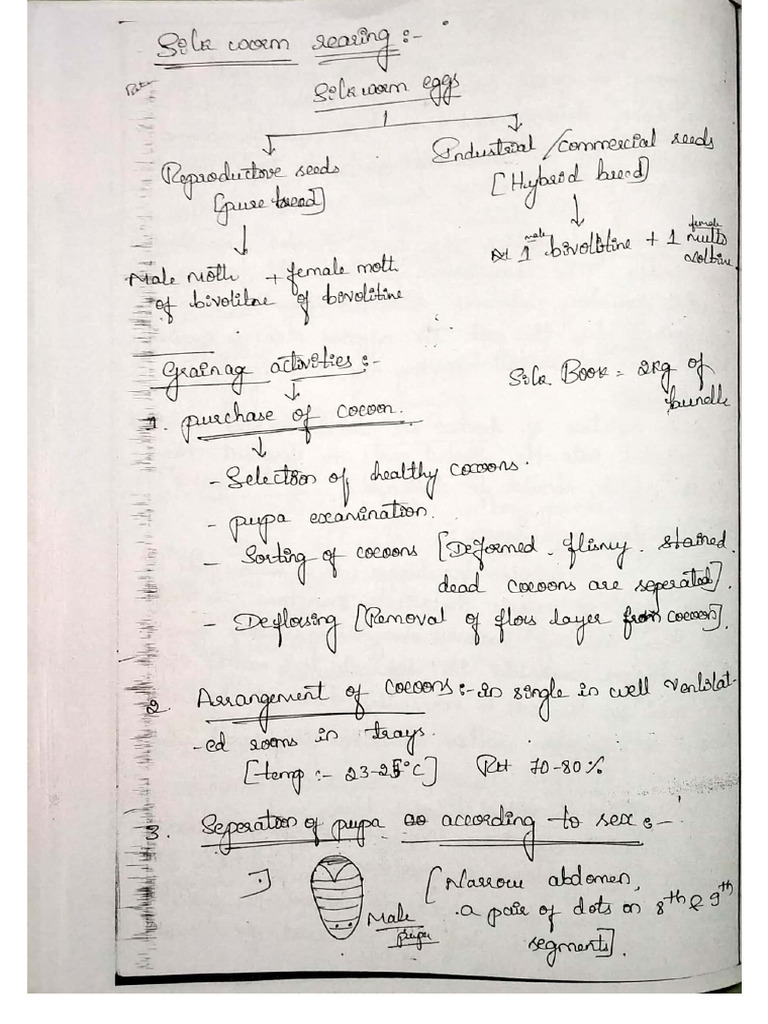 Silk worm rearing :-
Silk worm eggs
Reproductive seeds
[pure bread]
Industrial / commercial seeds
[Hybrid breed]
Male moth + female moth
of bivolitne of bivolitine
male female
1 bivolitine + 1 multi
voltine
Grainag activities :-
Silk Book = 2kg of
bundle
1. purchase of cocoon.
- Selection of healthy cocoons.
- pupa examination.
- Sorting of cocoons [Deformed, flisny, stained,
dead cocoons are seperated].
- Deflosing [Removal of floss layer from cocoon].
2. Arrangement of cocoons :- in single in well ventilat-
-ed rooms in trays.
[temp :- 23-25°C] RH 70-80%
3. Seperation of pupa according to sex :-
[Narrow abdomen,
a pair of dots on 8th & 9th
segments].
Male
pupa